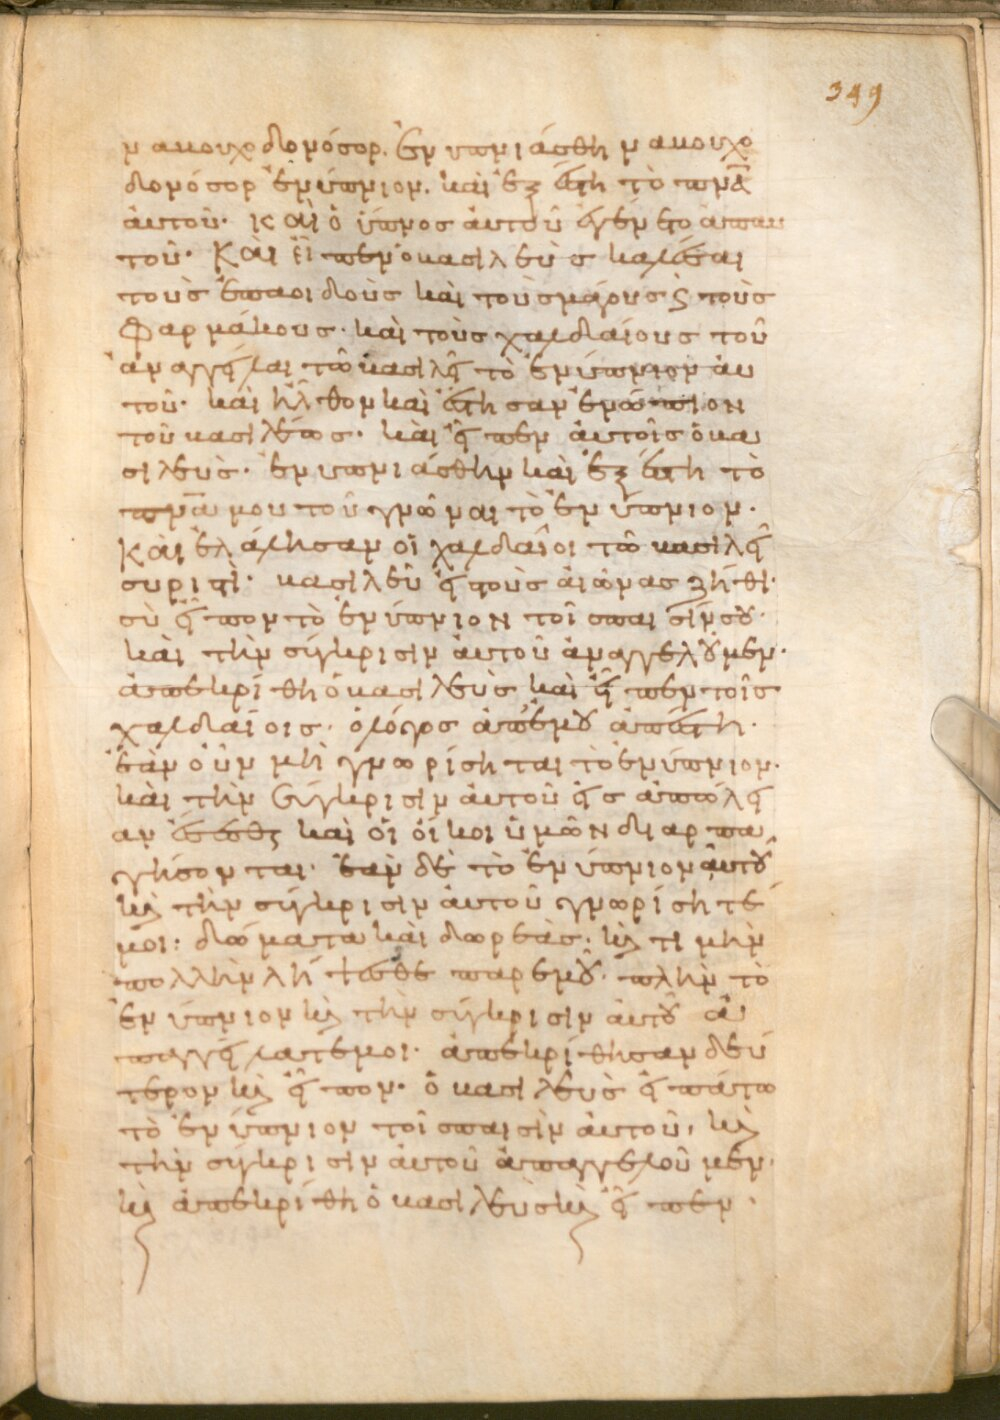 349
ναβουχοδονόσορ. ἐνυπνιάσθη ναβουχο
δονόσορ ἐνύπνιον. καὶ ἐξέστη τὸ πνᾶ
ἀυτοῦ· καὶ ὁ ὕπνος ἀυτοῦ ἐγένετο ἀπαυ
τοῦ· Καὶ εἶπεν ὁ βασιλεὺς καλέσαι
τοὺς ἐπαοιδοὺς καὶ τοὺς μάγους ϛ τοὺς
Φαρμάκους· καὶ τοὺς χαλδαίους τοῦ
ἀναγγεῖλαι τῶ βασιλεῖ τὸ ἐνύπνιον ἀυ
τοῦ· καὶ ἦλθον καὶ ἔστησαν ἐνώπιον
τοῦ βασιλέως· καὶ εἶπεν ἀυτοῖς ὁ βα
σιλεὺς· ἐνυπνιάσθην καὶ ἐξέστη τὸ
πνᾶ μου τοῦ γνῶναι τὸ ἐνύπνιον.
Καὶ ἐλάλησαν οἱ χαλδαῖοι τῶ βασιλεῖ
συριστὶ· βασιλεῦ εἰς τοὺς αἰῶνας ζῆθι·
σὺ εἶπον τὸ ἐνύπνιον τοῖς παισίν σου·
καὶ τὴν σύγκρισιν ἀυτοῦ ἀναγγελοῦμεν·
ἀπεκρίθη ὁ βασιλεὺς καὶ εἶπεν τοῖς
χαλδαίοις· ὁ λόγος ἀπ' ἐμοῦ ἀπέστη·
ἐὰν οὖν μὴ γνωρίσηται τὸ ἐνύπνιον·
καὶ τὴν σύγκρισιν ἀυτοῦ εἰς ἀπώλει
αν ἔσεσθε καὶ οἱ οἶκοι ὑμῶν διαρπα
γήσονται· ἐὰν δὲ τὸ ἐνύπνιον ἀυτοῦ
καὶ τὴν σύγκρισιν ἀυτοῦ γνωρίσητέ
μοι· δώματα καὶ δωρεὰς· καὶ τιμὴν
πολλὴν λήψεσθε παρεμοῦ· πλὴν τὸ
ἐνύπνιον καὶ τὴν σύγκρισιν ἀυτοῦ ἀ
παγγείλατέ μοι· ἀπεκρίθησαν δεύ
τερον καὶ εἶπον· ὁ βασιλεὺς εἰπάτω
τὸ ἐνύπνιον τοῖς παισὶν ἀυτοῦ, καὶ
τὴν σύγκρισιν ἀυτοῦ ἀπαγγελοῦμεν·
καὶ ἀπεκρίθη ὁ βασιλεὺς καὶ εἶπεν·